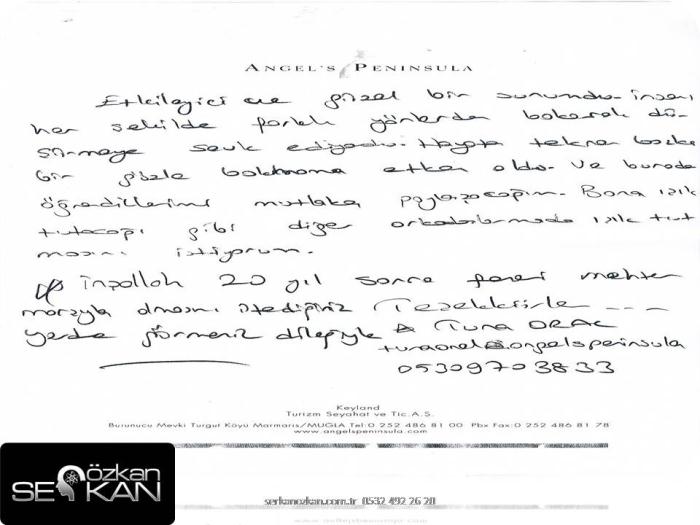 ANGEL'S PENINSULA
Etkileyici ve güzel bir sunumdu. İnsanı
her şekilde farklı yönlerden bakarak dü-
şünmeye sevk ediyordu. Hayata tekrar başka
bir gözle bakmama etken oldu. Ve burada
öğrendiklerimi mutlaka paylaşacağım. Bana ışık
tutacağı gibi diğer arkadaşlarımada ışık tut
masını istiyorum.
İnşallah 20 yıl sonra
olmasını istediğiniz Teşekkürle ---
yerde görmeniz dileğiyle Tuna ORAL
tunaoral@angelspeninsula
05309703833
Keyland
Turizm Seyahat ve Tic.A.S.
Burunucu Mevki Turgut Köyü Marmaris/MUĞLA Tel:0 252 486 81 00 Pbx Fax:0 252 486 81 78
www.angelspeninsula.com
özkan
SERKAN
serkanozkan.com.tr 0532 492 26 20